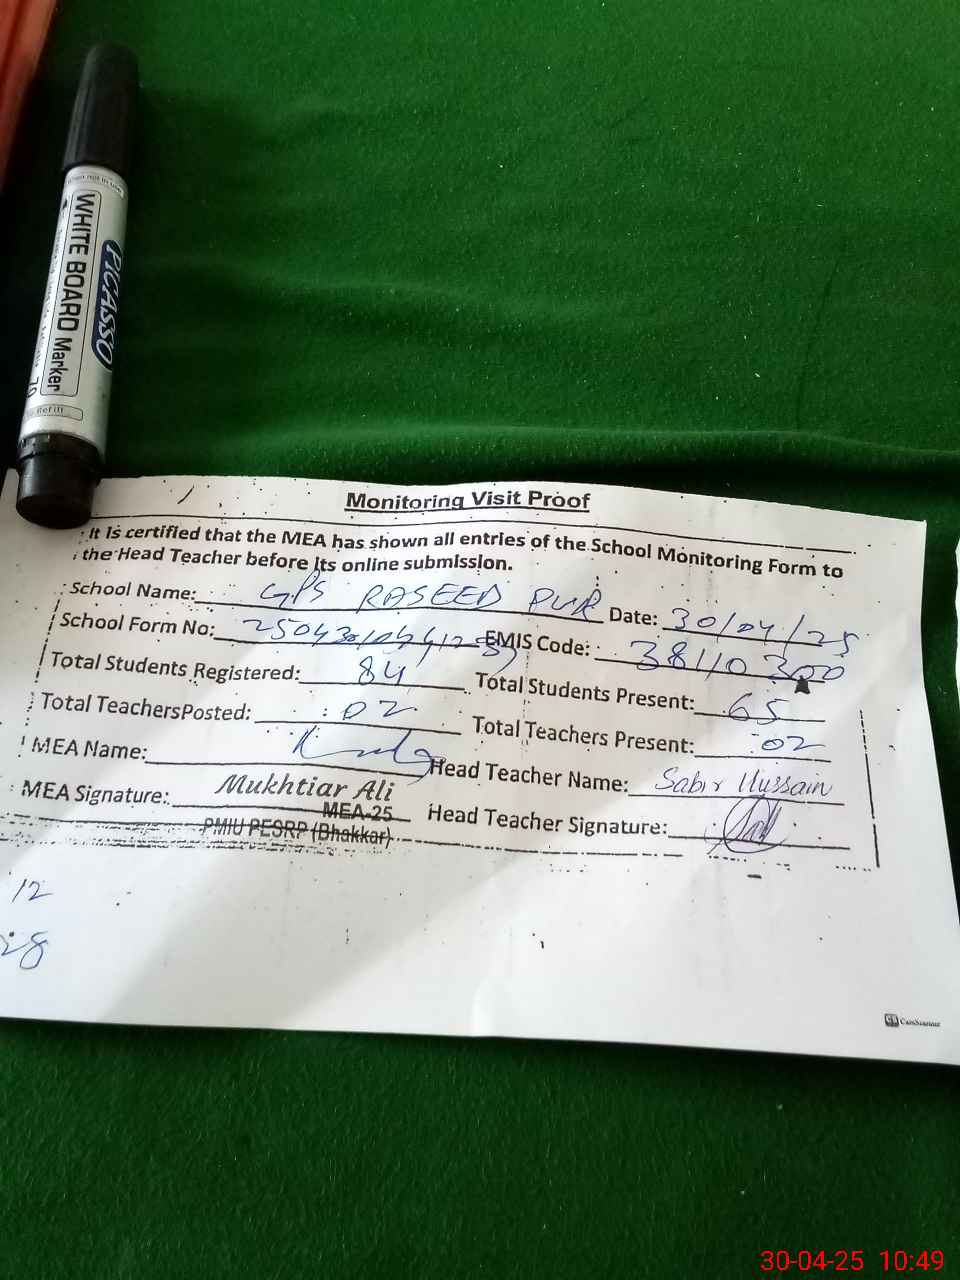 PICASSO
WHITE BOARD Marker
70
Refill
Monitoring Visit Proof
It is certified that the MEA has shown all entries of the School Monitoring Form to
the Head Teacher before its online submission.
School Name: GPS RASEED PUR Date: 30/04/25
School Form No: EMIS Code: 38110300
Total Students Registered: 84 Total Students Present: 65
Total TeachersPosted: 02 Total Teachers Present: 02
MEA Name: Head Teacher Name: Sabir Hussain
MEA Signature: Mukhtiar Ali Head Teacher Signature:
MEA-25
PMIU PESRP (Bhakkar)
12
28
CS CamScanner
30-04-25 10:49